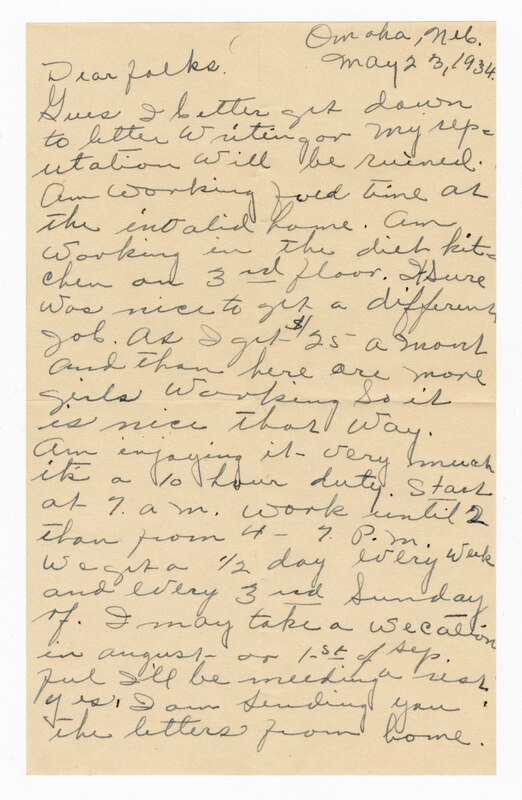 Omaha, Neb.
May 23, 1934.
Dear folks!
Gues I better get down
to letter writen or my rep=
utation will be ruined.
Am working foed time at
the invalid home. Am
working in the diet kit=
chen on 3rd floor. It Sure
was nice to get a different
job. As I get $25 a mont
and than here are more
girls working So it
is nice that way.
Am enjoying it very much
it's a 10 hour duty. Start
at 7. a.m. work until 2
than from 4 - 7. P.m.
We get a 1/2 day every week
and every 3rd Sunday
of. I may take a vecation
in august or 1-st of Sep.
ful I'll be meeding a rest
yes. I am sending you
the letters from home.